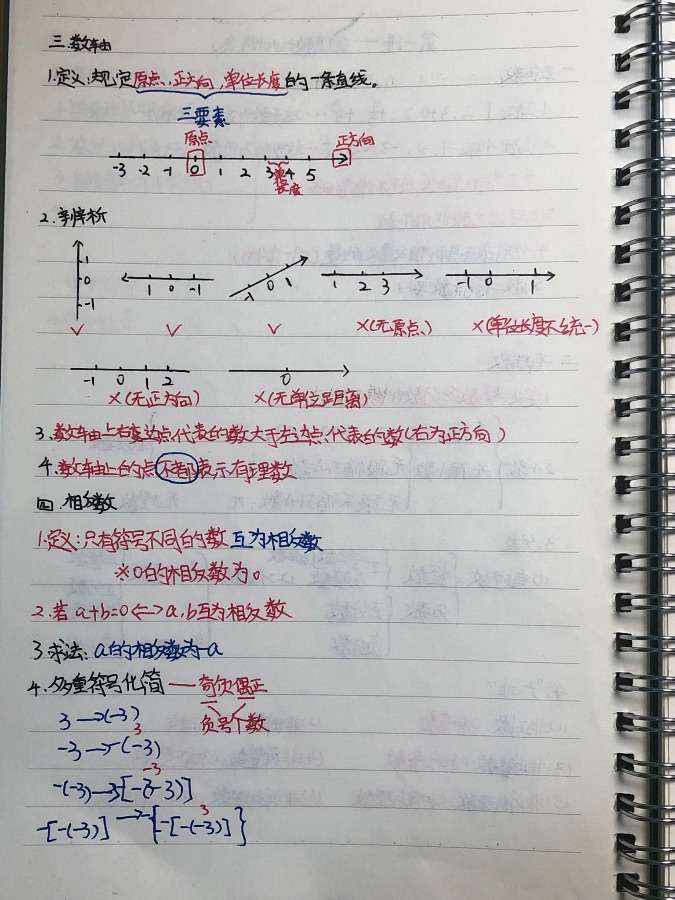 三.数轴
1.定义:规定原点,正方向,单位长度的一条直线。
三要素
原点 正方向
-3 -2 -1 0 1 2 3 4 5
单位长度
2.辨析
1 0 -1
1 0 -1
-1 0 1
1 2 3
-1 0 1
✓ ✓ ✓ ×(无原点) ×(单位长度不统一)
-1 0 1 2
0
×(无正方向) ×(无单位距离)
3.数轴上右边点代表的数大于左边点代表的数(右为正方向)
4.数轴上的点不都表示有理数
四.相反数
1.定义:只有符号不同的数互为相反数
※0的相反数为0
2.若a+b=0<—>a,b互为相反数
3.求法:a的相反数为-a
4.多重符号化简——奇负偶正
负号个数
3→(-3)
3
-3→-(-3)
-3
-(-3)→
3
-[-(-3)]→{-[-(-3)]}